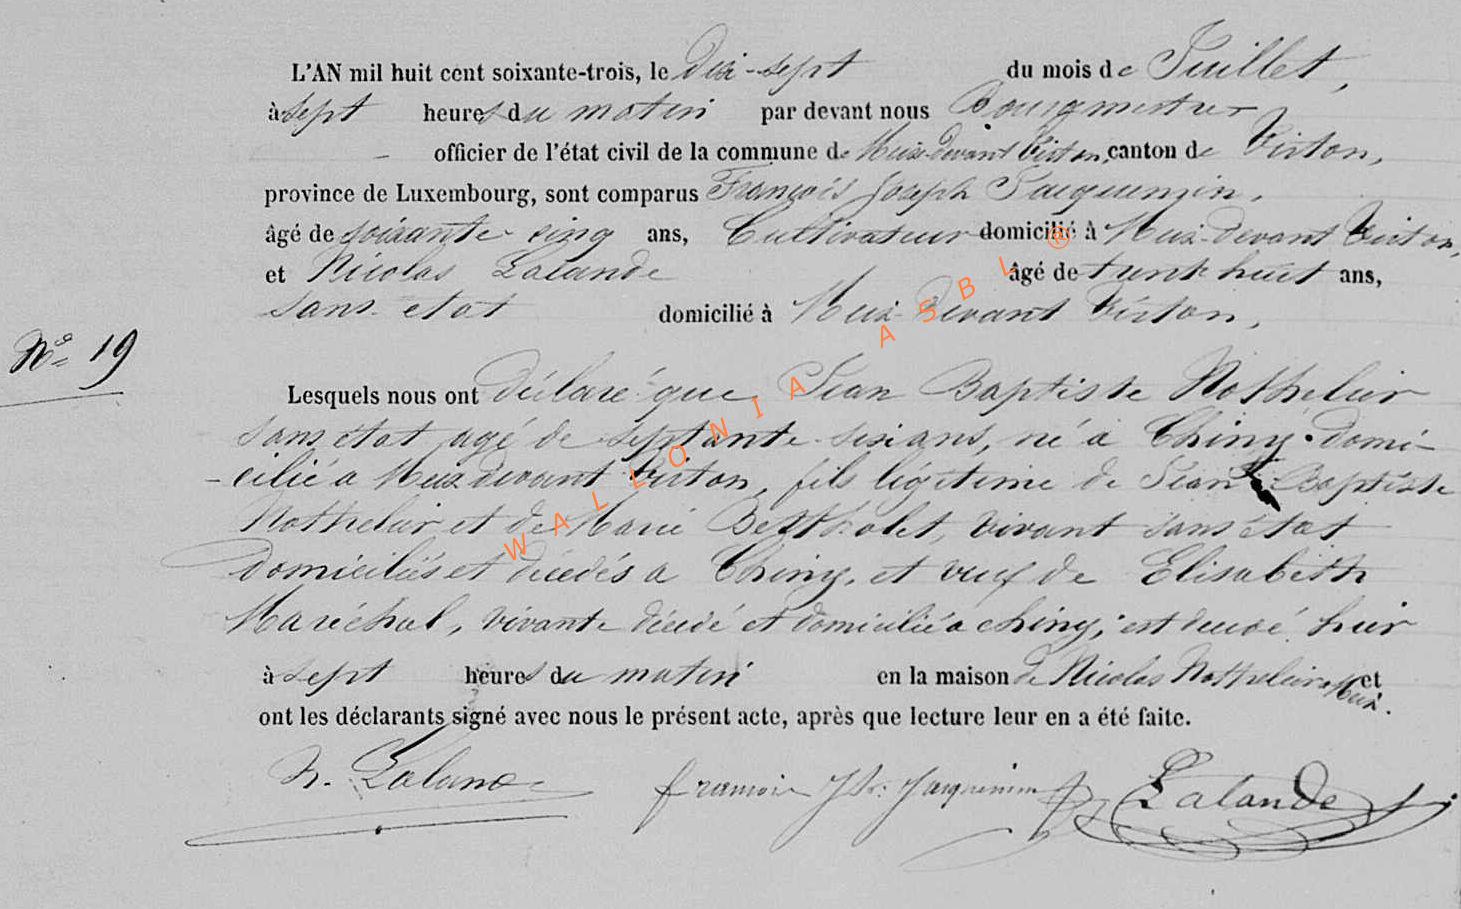 L'AN mil huit cent soixante-trois, le Dix-sept du mois de Juillet,
à sept heures du matin par devant nous Bourgmestre
officier de l'état civil de la commune de Meix-devant Virton, canton de Virton,
province de Luxembourg, sont comparus François Joseph Jacquemin,
âgé de soixante cinq ans, Cultivateur domicilié à Meix-devant Virton,
et Nicolas Lalande âgé de trente huit ans,
sans état domicilié à Meix-devant Virton,
Nº 19
Lesquels nous ont déclaré que Jean Baptiste Nothelier
sans état agé de septante six ans, né à Chiny domi-
-cilié a Meix devant Virton, fils légitime de Jean Baptiste
Nothelier et de Marie Bertholet, vivant sans état
domiciliés et décédés a Chiny, et veuf de Elisabeth
Maréchal, vivante décédé et domicilié a chiny, est décédé hier
à sept heures du matin en la maison de Nicolas Nothelier a Meix. et
ont les déclarants signé avec nous le présent acte, après que lecture leur en a été faite.
N. Lalande francois Jh. Jacquemin Lalande
WALLONIA ASBL ®